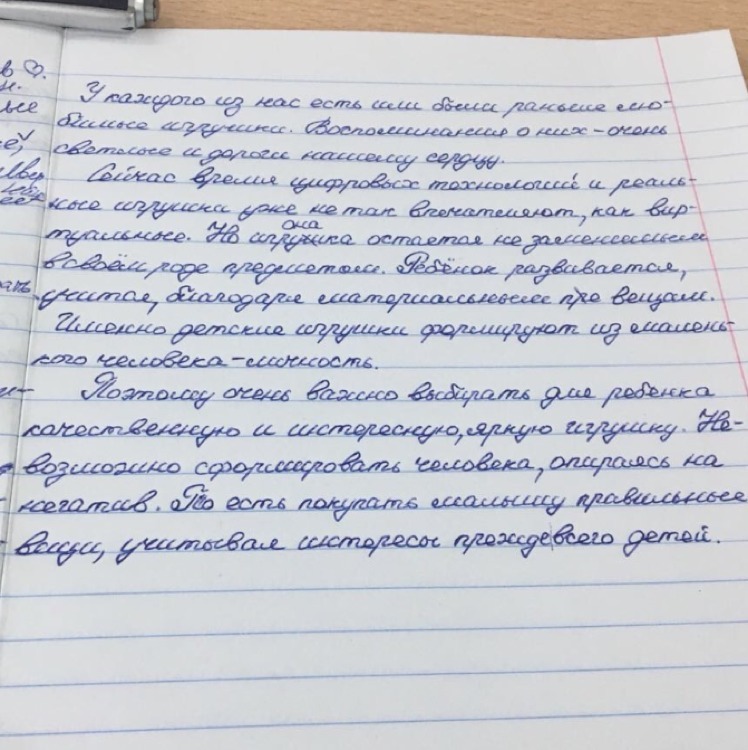 в
У каждого из нас есть или были раньше лю-
бимые игрушки. Воспоминания о них - очень
светлые и дороги нашему сердцу.
Сейчас время цифровых технологий и реаль-
ные игрушки уже не так впечатляют, как вир-
она
туальные. Но игрушка остаётся не заменимым
в своём роде предметом. Ребёнок развивается,
учится, благодаря материальным вещам.
Именно детские игрушки формируют из малень-
кого человека - личность.
Поэтому очень важно выбирать для ребенка
качественную и интересную, яркую игрушку. Не-
возможно сформировать человека, опираясь на
негатив. То есть покупать малышу правильные
вещи, учитывая интересы прежде всего детей.